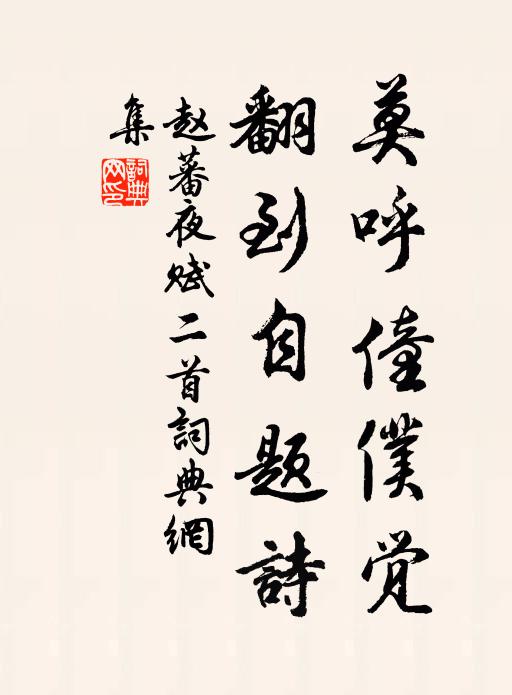 莫呼僮僕觉
翻到自题詩
赵蕃夜赋二首詞典網
集
詞典网印